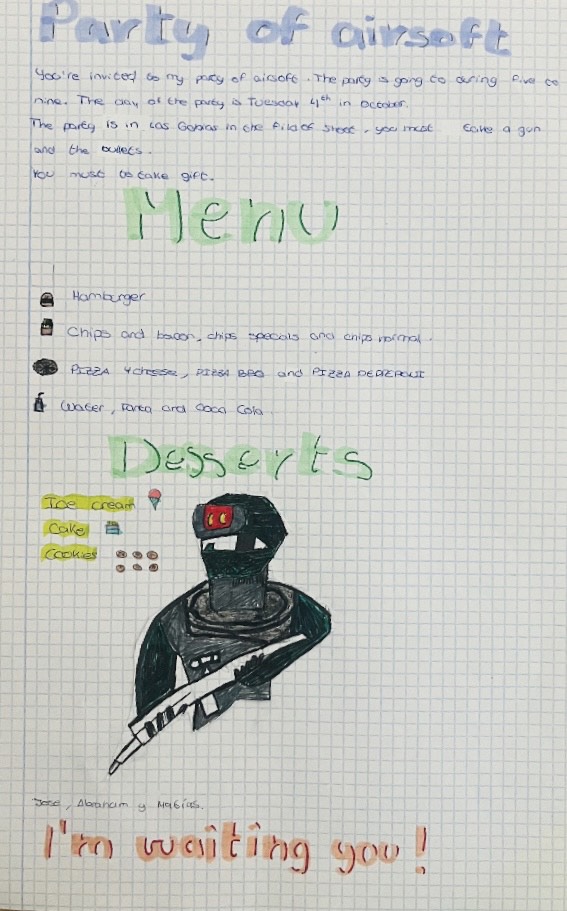 Party of airsoft
You're invited to my party of airsoft. The party is going to during five to
nine. The day of the party is Tuesday 4th in October.
The party is in Las Gabias in the of street, you must take a gun
and the bullets.
You must to take gift.
Menu
Hamburger
Chips and bacon, chips specials and chips normal.
PIZZA 4 cheese, PIZZA BBQ and PIZZA PEPERONI
Water, Fanta and Coca Cola.
Desserts
Ice cream
Cake
Cookies
Jose, Abraham y Matías.
I'm waiting you!